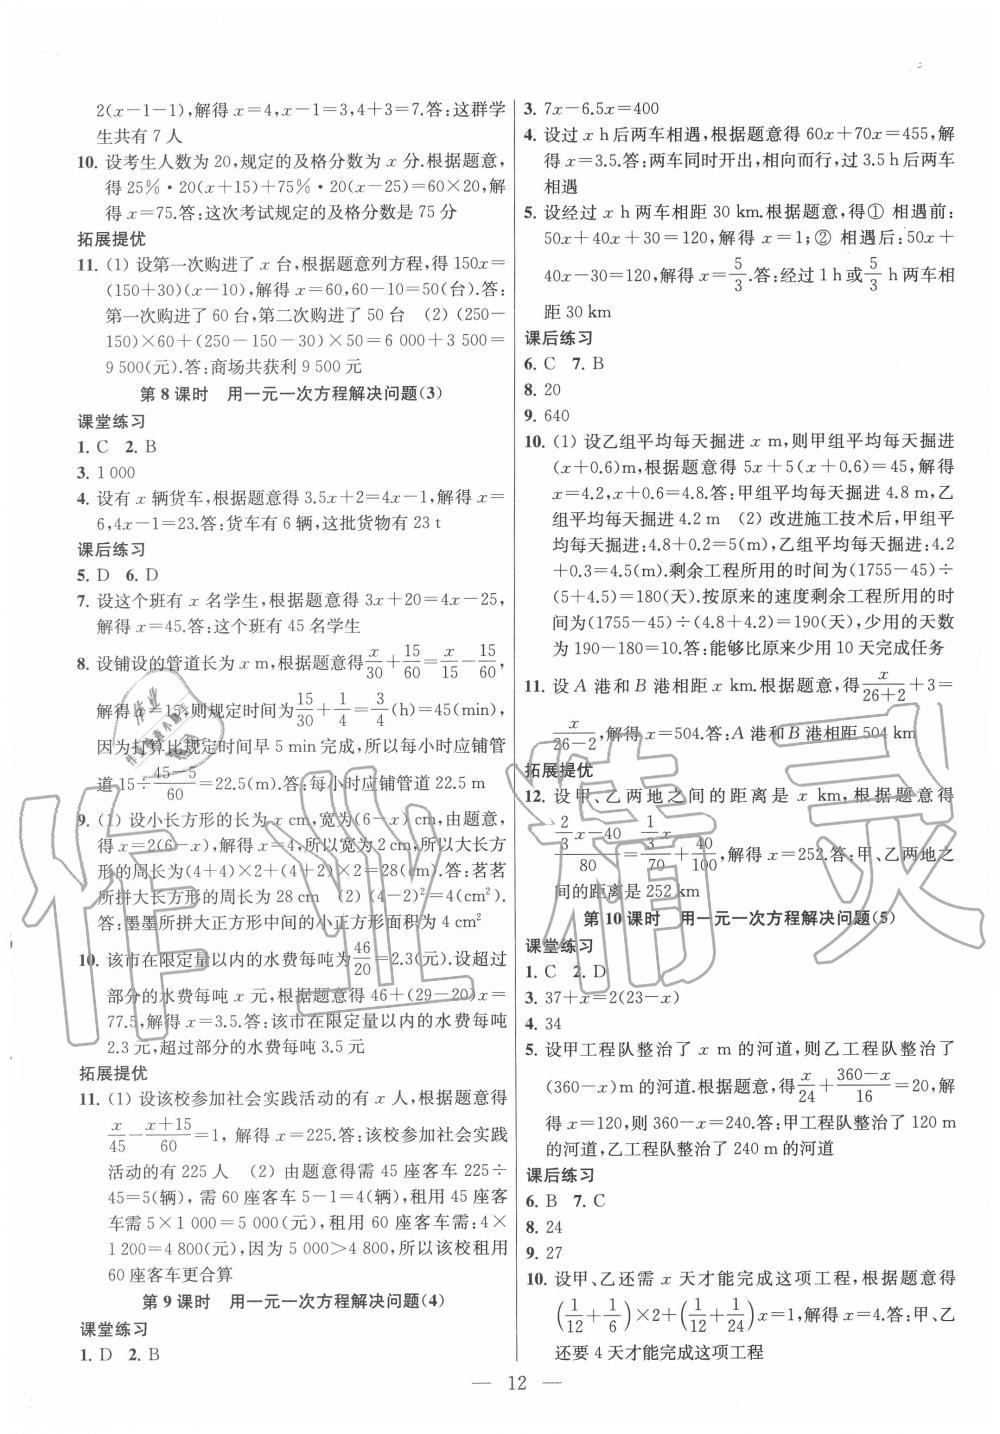 2(x－1－1),解得 x＝4,x－1＝3,4＋3＝7.答:这群学
生共有 7 人
10. 设考生人数为 20,规定的及格分数为 x 分.根据题意,
得 25%·20(x＋15)＋75%·20(x－25)＝60×20,解
得 x＝75.答:这次考试规定的及格分数是 75 分
拓展提优
11. (1) 设第一次购进了 x 台,根据题意列方程,得 150x＝
(150＋30)(x－10),解得 x＝60,60－10＝50(台).答:
第一次购进了 60 台,第二次购进了 50 台 (2) (250－
150)×60＋(250－150－30)×50＝6 000＋3 500＝
9 500(元).答:商场共获利 9 500 元
第 8 课时 用一元一次方程解决问题(3)
课堂练习
1. C 2. B
3. 1 000
4. 设有 x 辆货车,根据题意得 3.5x＋2＝4x－1,解得 x＝
6,4x－1＝23.答:货车有 6 辆,这批货物有 23 t
课后练习
5. D 6. D
7. 设这个班有 x 名学生,根据题意得 3x＋20＝4x－25,
解得 x＝45.答:这个班有 45 名学生
8. 设铺设的管道长为 x m,根据题意得 x/30＋15/60＝x/15－15/60,
解得 x＝15,则规定时间为 15/30＋1/4＝3/4(h)＝45(min),
因为打算比规定时间早 5 min 完成,所以每小时应铺管
道 15÷(45－5)/60＝22.5(m).答:每小时应铺管道 22.5 m
9. (1) 设小长方形的长为 x cm,宽为(6－x) cm,由题意,
得 x＝2(6－x),解得 x＝4,所以宽为 2 cm,所以大长方
形的周长为(4＋4)×2＋(4＋2)×2＝28(cm).答:茗茗
所拼大长方形的周长为 28 cm (2) (4－2)²＝4(cm²)
答:墨墨所拼大正方形中间的小正方形面积为 4 cm²
10. 该市在限定量以内的水费每吨为 46/20＝2.3(元).设超过
部分的水费每吨 x 元,根据题意得 46＋(29－20)x＝
77.5,解得 x＝3.5.答:该市在限定量以内的水费每吨
2.3 元,超过部分的水费每吨 3.5 元
拓展提优
11. (1) 设该校参加社会实践活动的有 x 人,根据题意得
x/45－(x＋15)/60＝1, 解得 x＝225.答:该校参加社会实践
活动的有 225 人 (2) 由题意得需 45 座客车 225÷
45＝5(辆), 需 60 座客车 5－1＝4(辆), 租用 45 座客
车需 5×1 000＝5 000(元),租用 60 座客车需:4×
1 200＝4 800(元),因为 5 000＞4 800,所以该校租用
60 座客车更合算
第 9 课时 用一元一次方程解决问题(4)
课堂练习
1. D 2. B
3. 7x－6.5x＝400
4. 设过 x h 后两车相遇,根据题意得 60x＋70x＝455,解
得 x＝3.5.答:两车同时开出,相向而行,过 3.5 h 后两车
相遇
5. 设经过 x h 两车相距 30 km.根据题意,得① 相遇前:
50x＋40x＋30＝120,解得 x＝1;② 相遇后:50x＋
40x－30＝120,解得 x＝5/3.答:经过 1 h 或 5/3 h 两车相
距 30 km
课后练习
6. C 7. B
8. 20
9. 640
10. (1) 设乙组平均每天掘进 x m,则甲组平均每天掘进
(x＋0.6)m,根据题意得 5x＋5(x＋0.6)＝45,解得
x＝4.2,x＋0.6＝4.8.答:甲组平均每天掘进 4.8 m,乙
组平均每天掘进 4.2 m (2) 改进施工技术后,甲组平
均每天掘进:4.8＋0.2＝5(m),乙组平均每天掘进:4.2
＋0.3＝4.5(m).剩余工程所用的时间为(1755－45)÷
(5＋4.5)＝180(天).按原来的速度剩余工程所用的时
间为(1755－45)÷(4.8＋4.2)＝190(天),少用的天数
为 190－180＝10.答:能够比原来少用 10 天完成任务
11. 设 A 港和 B 港相距 x km.根据题意,得 x/(26＋2)＋3＝
x/(26－2),解得 x＝504.答:A 港和 B 港相距 504 km
拓展提优
12. 设甲、乙两地之间的距离是 x km,根据题意得
(2/3x－40)/80＝(1/3x)/70＋40/100,解得 x＝252.答:甲、乙两地之
间的距离是 252 km
第 10 课时 用一元一次方程解决问题(5)
课堂练习
1. C 2. D
3. 37＋x＝2(23－x)
4. 34
5. 设甲工程队整治了 x m 的河道,则乙工程队整治了
(360－x)m 的河道.根据题意得 x/24＋(360－x)/16＝20,解
得 x＝120,则 360－x＝240.答:甲工程队整治了 120 m
的河道,乙工程队整治了 240 m 的河道
课后练习
6. B 7. C
8. 24
9. 27
10. 设甲、乙还需 x 天才能完成这项工程,根据题意得
(1/12＋1/6)×2＋(1/12＋1/24)x＝1,解得 x＝4.答:甲、乙
还要 4 天才能完成这项工程
— 12 —
作业精灵